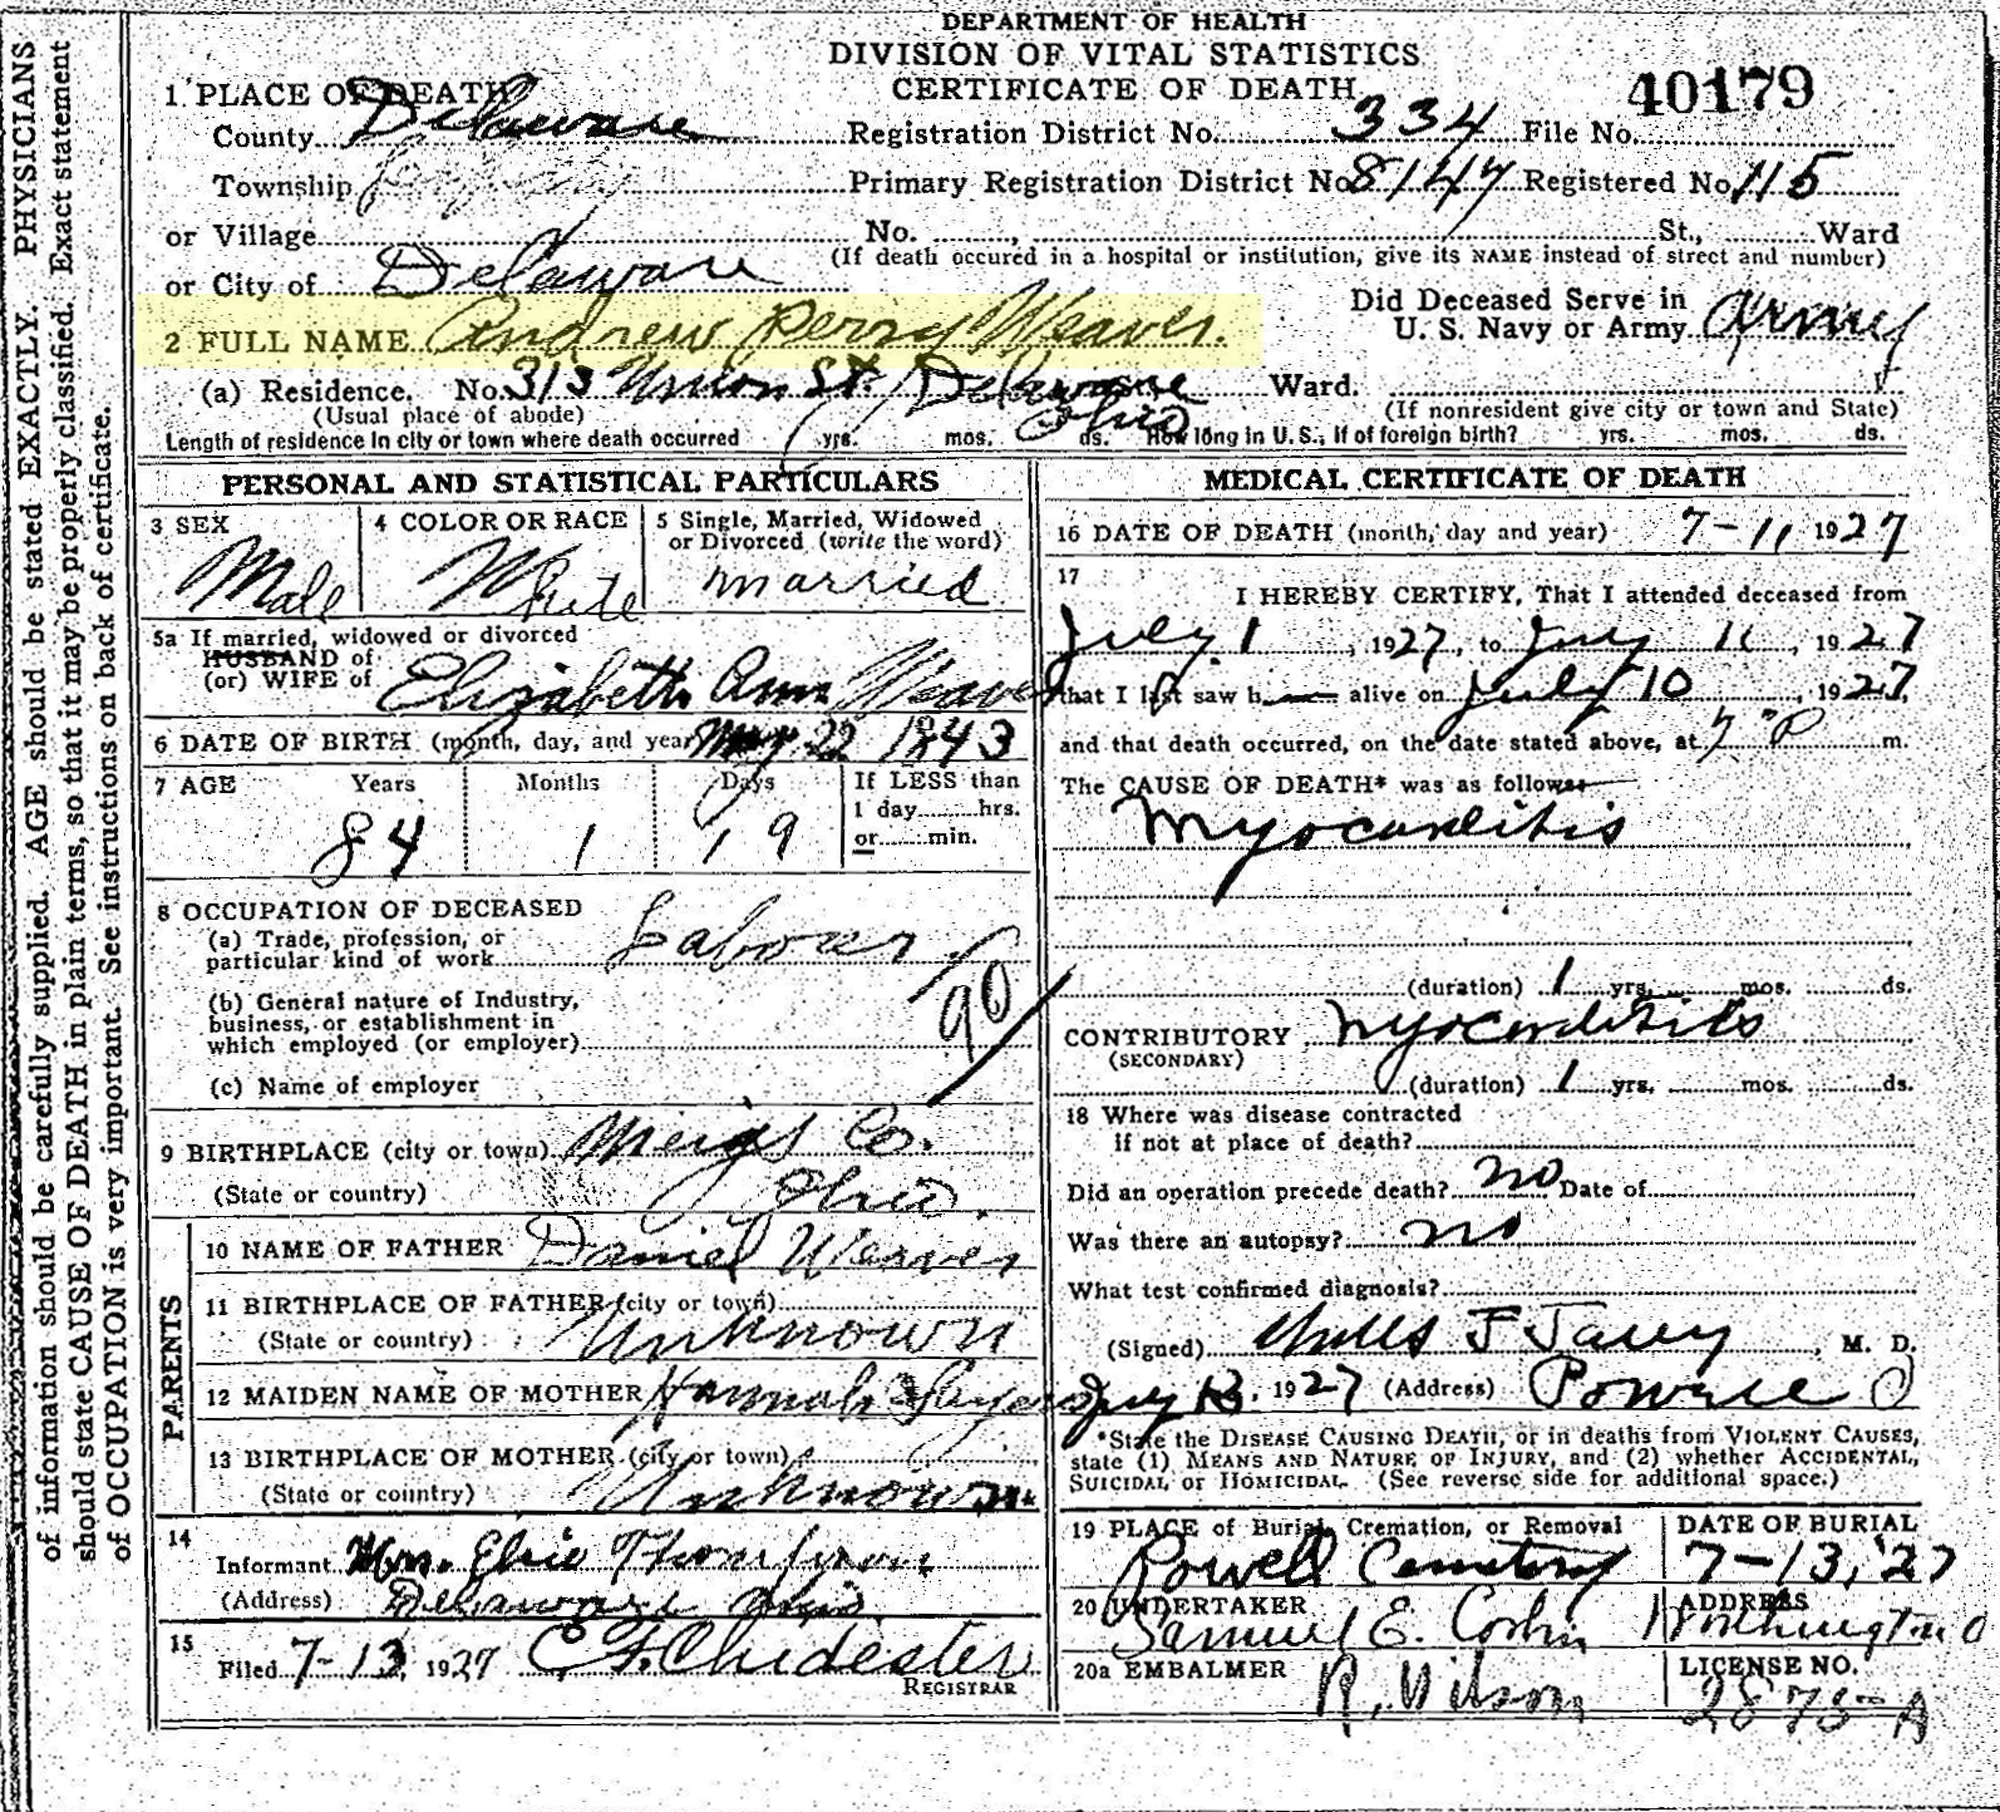 DEPARTMENT OF HEALTH
DIVISION OF VITAL STATISTICS
CERTIFICATE OF DEATH
40179
1 PLACE OF DEATH
County Delaware Registration District No. 334 File No.
Township Primary Registration District No. 8147 Registered No. 115
or Village No. , St., Ward
(If death occured in a hospital or institution, give its NAME instead of street and number)
or City of Delaware
2 FULL NAME Andrew Perry Weaver. Did Deceased Serve in U. S. Navy or Army Army
(a) Residence. No. 313 Union St. Delaware Ohio Ward.
(Usual place of abode) (If nonresident give city or town and State)
Length of residence in city or town where death occurred yrs. mos. ds. How long in U. S., if of foreign birth? yrs. mos. ds.
PERSONAL AND STATISTICAL PARTICULARS
3 SEX Male
4 COLOR OR RACE White
5 Single, Married, Widowed or Divorced (write the word) married
5a If married, widowed or divorced
HUSBAND of
(or) WIFE of Elizabeth Ann Weaver
6 DATE OF BIRTH (month, day, and year) May 22 1843
7 AGE Years 84 Months 1 Days 19 If LESS than 1 day hrs. or min.
8 OCCUPATION OF DECEASED
(a) Trade, profession, or
particular kind of work Laborer
(b) General nature of Industry,
business, or establishment in
which employed (or employer)
90
(c) Name of employer
9 BIRTHPLACE (city or town) Meigs Co.
(State or country) Ohio.
PARENTS
10 NAME OF FATHER Daniel Weaver
11 BIRTHPLACE OF FATHER (city or town)
(State or country) Unknown
12 MAIDEN NAME OF MOTHER Hannah
13 BIRTHPLACE OF MOTHER (city or town)
(State or country) Unknown
14
Informant Mrs. Elsie Thompson
(Address) Delaware Ohio
15
Filed 7-13, 1927 C. F. Chidester
REGISTRAR
MEDICAL CERTIFICATE OF DEATH
16 DATE OF DEATH (month, day and year) 7-11 1927
17
I HEREBY CERTIFY, That I attended deceased from
July 1, 1927, to July 11, 1927
that I last saw h alive on July 10, 1927,
and that death occurred, on the date stated above, at 7 P m.
The CAUSE OF DEATH* was as follows
Myocarditis
(duration) 1 yrs. mos. ds.
CONTRIBUTORY Myocarditis
(SECONDARY)
(duration) 1 yrs. mos. ds.
18 Where was disease contracted
if not at place of death?
Did an operation precede death? no Date of
Was there an autopsy? no
What test confirmed diagnosis?
(Signed) F , M. D.
July 13, 1927 (Address) Powell O
*State the DISEASE CAUSING DEATH, or in deaths from VIOLENT CAUSES,
state (1) MEANS AND NATURE OF INJURY, and (2) whether ACCIDENTAL,
SUICIDAL or HOMICIDAL. (See reverse side for additional space.)
19 PLACE of Burial, Cremation, or Removal
Powell Cemetery
DATE OF BURIAL
7-13, '27
20 UNDERTAKER
Samuel E. Corbin
ADDRESS
Worthington O
20a EMBALMER
R. Wilson
LICENSE NO.
2878-A
of information should be carefully supplied. AGE should be stated EXACTLY. PHYSICIANS
should state CAUSE OF DEATH in plain terms, so that it may be properly classified. Exact statement
of OCCUPATION is very important. See instructions on back of certificate.